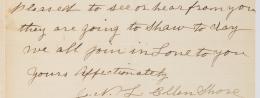 pleased to see or hear from you
they are going to Shaw to day
we all join in Love to you
Yours affectionately
Ellen Shore